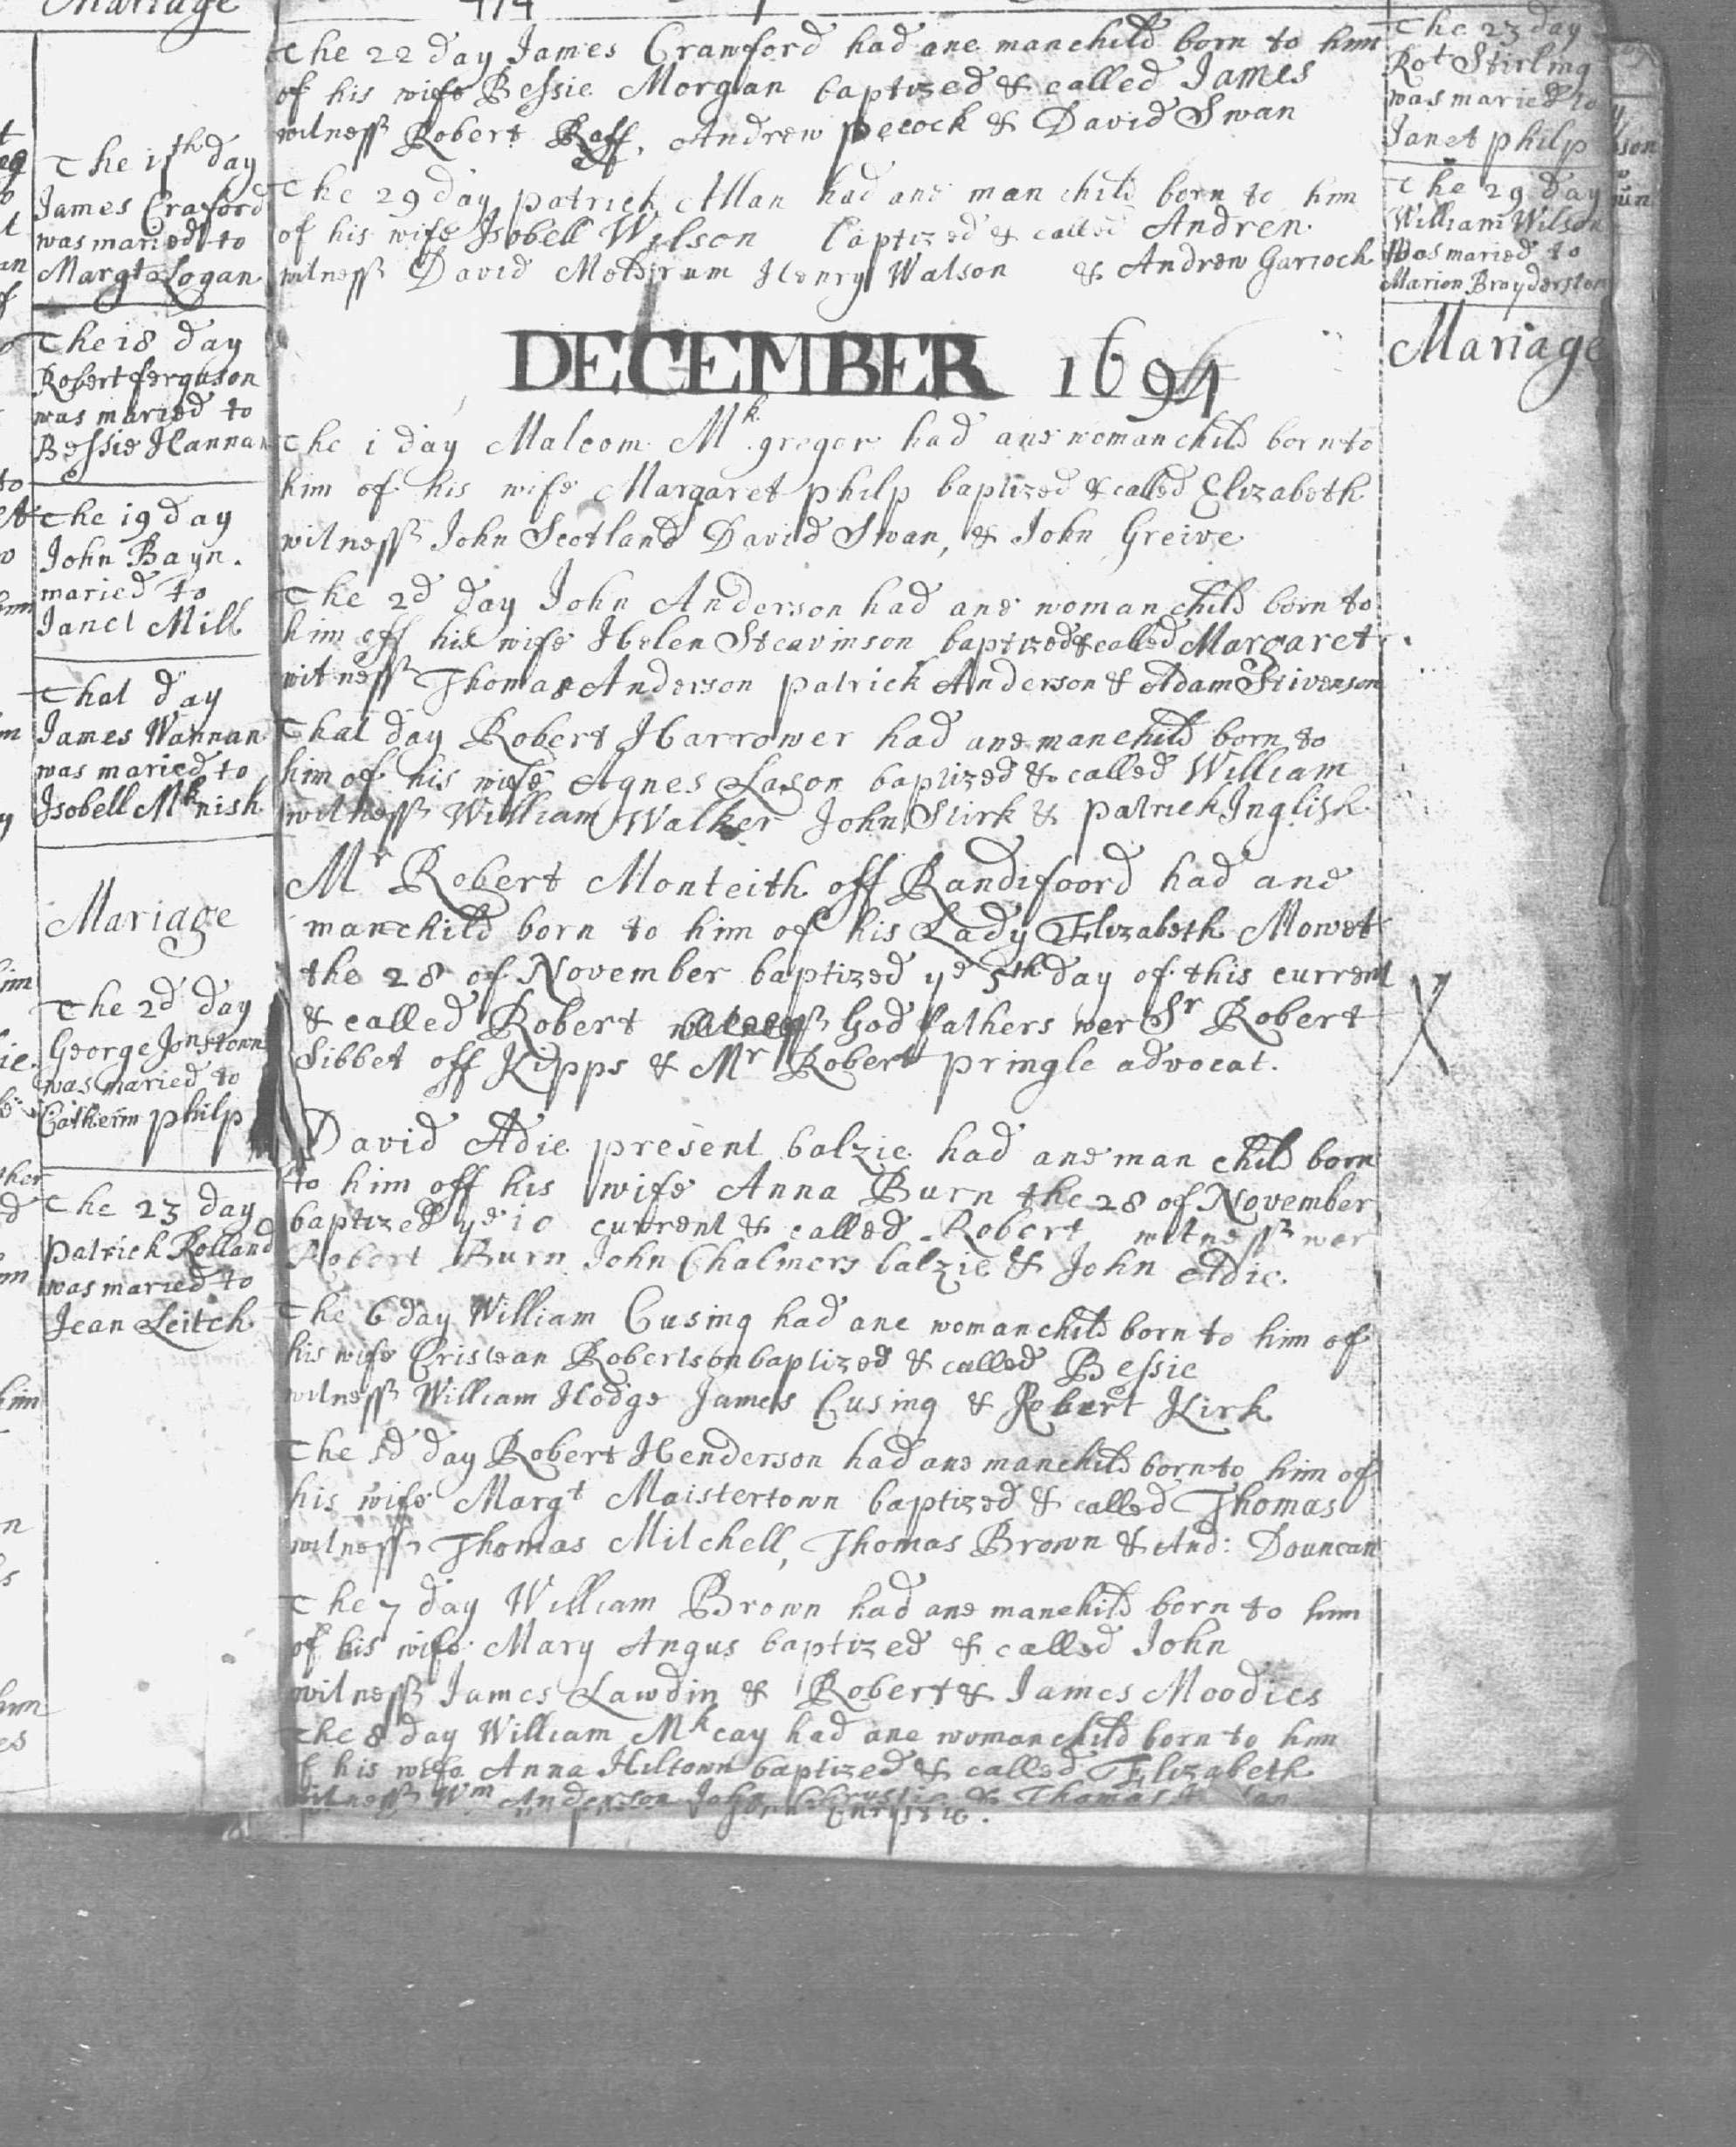 Mariage
The 15th day
James Craford
was maried to
Margt Logan
The 18 day
Robert ferguson
was maried to
Bessie Hannan
The 19 day
John Bayn.
maried to
Janet Mill
That day
James Wannan
was maried to
Isobell Mknish
Mariage
The 2d day
George Jonstown
was maried to
Catherin philp
The 23 day
Patrick Rolland
was maried to
Jean Leitch
The 22 day James Crawford had ane manchild born to him
of his wife Bessie Morgan baptized & called James
witness Robert Raff, Andrew pecock & David Swan
The 29 day patrick Allan had ane man child born to him
of his wife Isobell Wilson baptized & called Andrew.
witness David Henry Watson & Andrew Gariock
DECEMBER 1694
The 1 day Malcom Mk.gregor had ane woman child born to
him of his wife Margaret philp baptized & called Elizabeth
witness John Scotland David Swan, & John Greive
The 2d day John Anderson had ane woman child born to
him off his wife Helen Steavinson baptized & called Margaret
witness Thomas Anderson patrick Anderson & Adam Stivenson
That day Robert Harrower had ane manchild born to
him of his wife Agnes Lason baptized & called William
witness William Walker John Stirk & patrick Inglish
Mr Robert Monteith off Randifoord had ane
manchild born to him of his Lady Elizabeth Mowet
the 28 of November baptized ye 5th day of this current
& called Robert witness God fathers wer Sr Robert
Sibbet off Kipps & Mr Robert pringle advocat.
David Adie present balzie had ane man child born
to him off his wife Anna Burn the 28 of November
baptized ye 10 current & called Robert witness wer
Robert Burn John Chalmers balzie & John Adie.
The 6 day William Cusing had ane womanchild born to him of
his wife Cristean Robertson baptized & called Bessie
witness William Hodge James Cusing & Robert Kirk
The sd day Robert Henderson had ane manchild born to him of
his wife Margt Maistertown baptized & called Thomas
witness Thomas Mitchell, Thomas Brown & And: Douncan
The 7 day William Brown had ane manchild born to him
of his wife Mary Angus baptized & called John
witness James Lawdin & Robert & James Moodies
The 8 day William Mkcay had ane womanchild born to him
of his wife Anna Hiltown baptized & called Elizabeth
witness Wm Anderson John Chrystie & Thomas
John Chrystie.
The 23 day
Rot Stirling
was maried to
Janet philp
The 29 day
William Wilson
was maried to
Marion Broyderston
Mariage
X